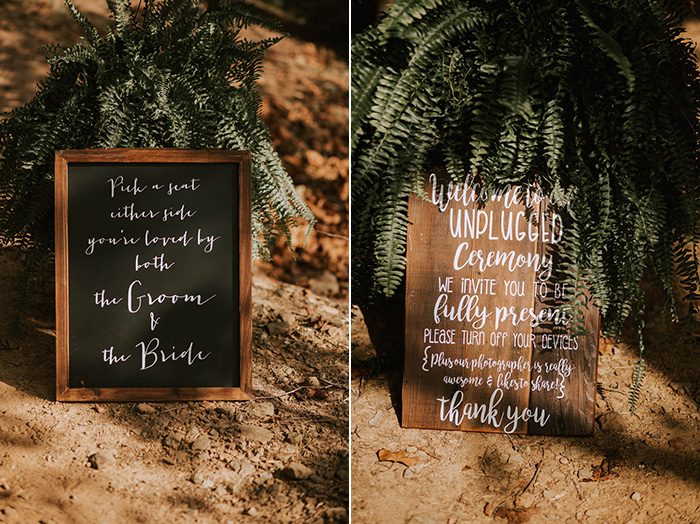 Pick a seat
either side
you're loved by
both
the Groom
&
the Bride
Welcome to
UNPLUGGED
Ceremony
WE INVITE YOU TO BE
fully present
PLEASE TURN OFF YOUR DEVICES
{Plus our photographer is really
awesome & likes to share!}
Thank you